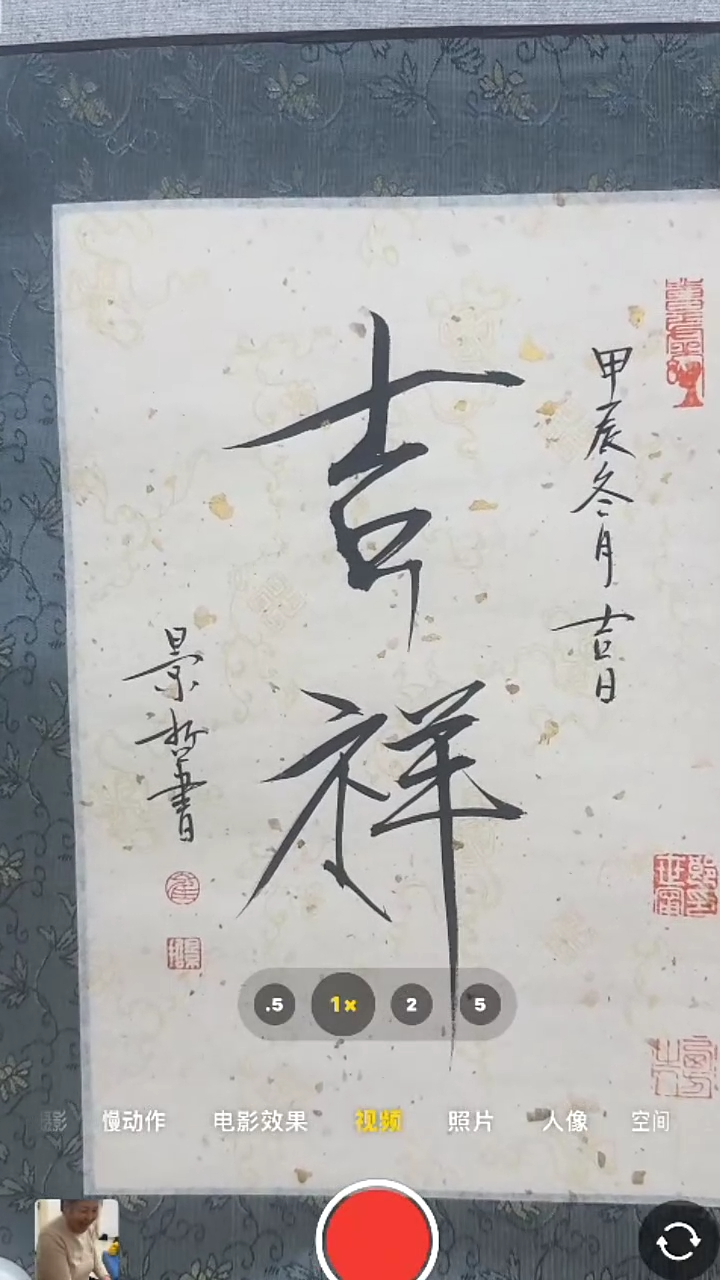 甲辰冬月吉日
吉祥
景哲書
.5 1× 2 5
慢动作 电影效果 视频 照片 人像 空间